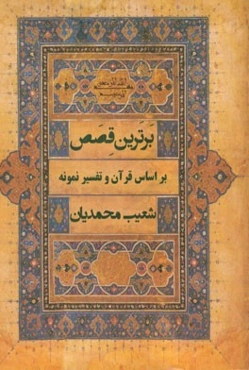 برترین قصص
بر اساس قرآن و تفسیر نمونه
شعیب محمدیان